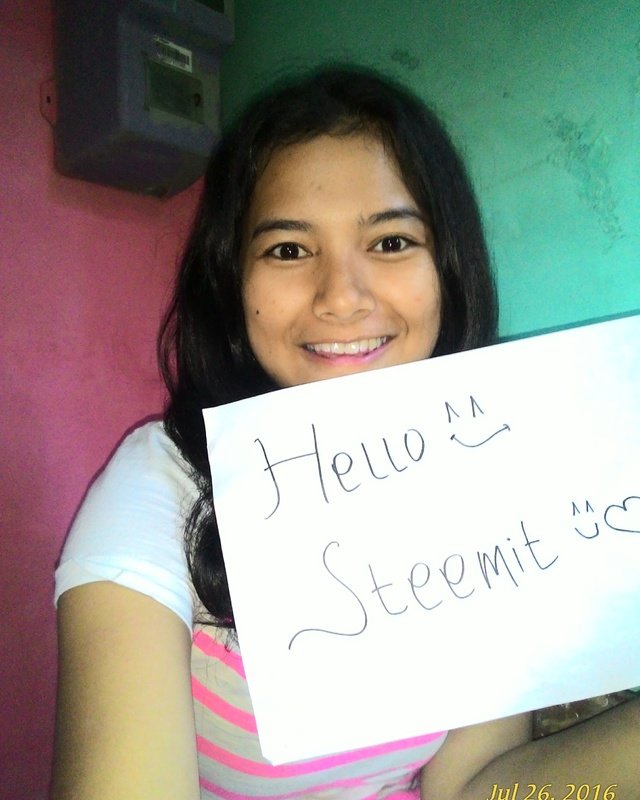 Hello ^^
Steemit ^^ ♡
Jul 26, 2016